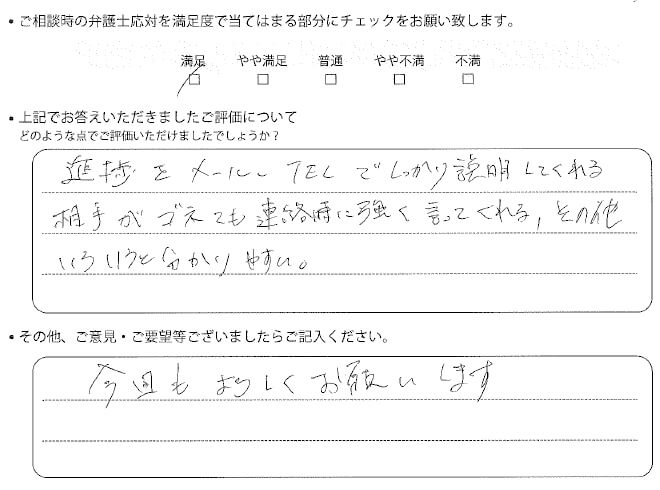 • ご相談時の弁護士応対を満足度で当てはまる部分にチェックをお願い致します。
満足 やや満足 普通 やや不満 不満
□ □ □ □ □
• 上記でお答えいただきましたご評価について
どのような点でご評価いただけましたでしょうか？
進捗をメール、TELでしっかり説明してくれる
相手がゴネても連絡時に強く言ってくれる，その他
いろいろと分かりやすい。
• その他、ご意見・ご要望等ございましたらご記入ください。
今回もよろしくお願いします